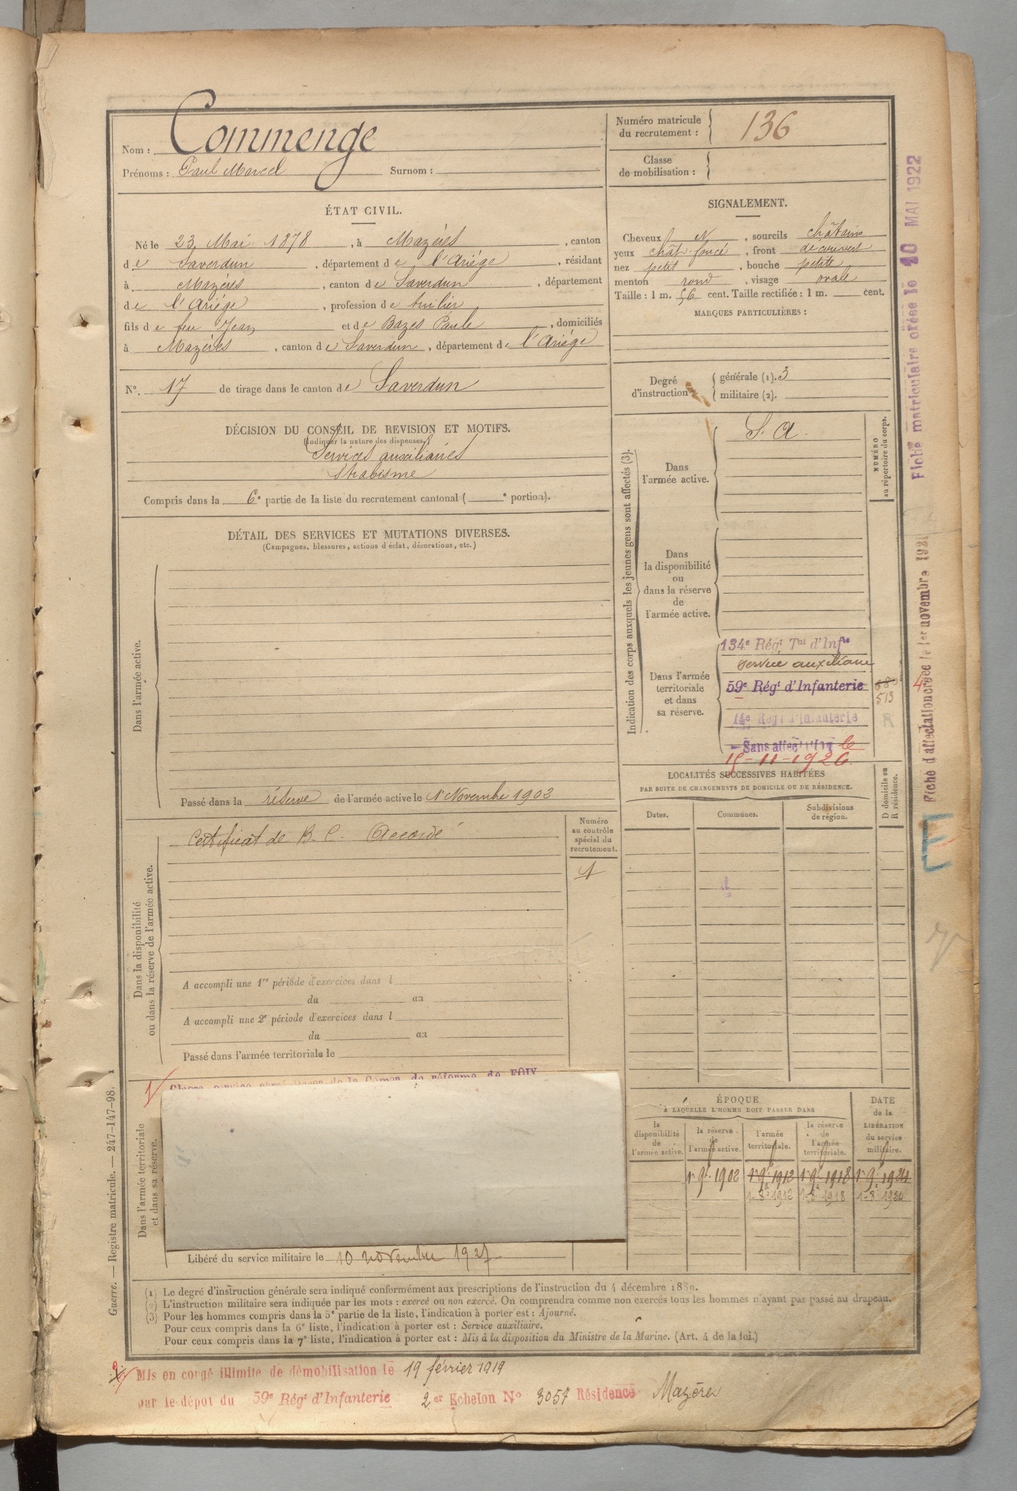 Nom : Commenge
Prénoms : Paul Marcel Surnom :
Numéro matricule du recrutement : 136
Classe de mobilisation :
ÉTAT CIVIL.
Né le 23 Mai 1878, à Mazères, canton
de Saverdun, département de l'Ariége, résidant
à Mazères, canton de Saverdun, département
de l'Ariége, profession de
fils de feu Jean et de Bazes Paule, domiciliés
à Mazères, canton de Saverdun, département de l'Ariége
N°. 17 de tirage dans le canton de Saverdun
SIGNALEMENT.
Cheveux N, sourcils châtains
yeux chât. foncé, front découvert
nez petit, bouche petite
menton rond, visage ovale
Taille : 1 m. 56 cent. Taille rectifiée : 1 m. cent.
MARQUES PARTICULIÈRES :
Degré d'instruction générale (1). 3
militaire (2).
DÉCISION DU CONSEIL DE REVISION ET MOTIFS.
(Indiquer la nature des dispenses.)
Services auxiliaires
Strabisme
Compris dans la 6e partie de la liste du recrutement cantonal ( e portion).
DÉTAIL DES SERVICES ET MUTATIONS DIVERSES.
(Campagnes, blessures, actions d'éclat, décorations, etc.)
Dans l'armée active.
Passé dans la réserve de l'armée active le 1er Novembre 1903
Indication des corps auxquels les jeunes gens sont affectés (3).
NUMÉRO au répertoire du corps.
Dans l'armée active.
S. A
Dans la disponibilité ou dans la réserve de l'armée active.
Dans l'armée territoriale et dans sa réserve.
134e Régt Tal d'Infie
service auxiliaire
59e Régt d'Infanterie
513
14e Régt d'Infanterie
Sans affectation le
15-11-1926
LOCALITÉS SUCCESSIVES HABITÉES
PAR SUITE DE CHANGEMENTS DE DOMICILE OU DE RÉSIDENCE.
Dates.
Communes.
Subdivisions de région.
D domicile ou R résidence.
Dans la disponibilité ou dans la réserve de l'armée active.
Certificat de B. C. Accordé
Numéro au contrôle spécial du recrutement.
1
A accompli une 1re période d'exercices dans l
du au
A accompli une 2e période d'exercices dans l
du au
Passé dans l'armée territoriale le
Dans l'armée territoriale et dans sa réserve.
1/ Classé service de la Comon de réforme de FOIX
Libéré du service militaire le 10 novembre 1927
ÉPOQUE
A LAQUELLE L'HOMME DOIT PASSER DANS
la disponibilité de l'armée active.
la réserve de l'armée active.
l'armée territoriale.
la réserve de l'armée territoriale.
DATE de la LIBÉRATION du service militaire.
1er 9bre 1902 1er 9bre 1912 1er 9bre 1918 1er 9bre 1924
Guerre. — Registre matricule. — 247-147-98.
(1) Le degré d'instruction générale sera indiqué conformément aux prescriptions de l'instruction du 4 décembre 1889.
(2) L'instruction militaire sera indiquée par les mots : exercé ou non exercé. On comprendra comme non exercés tous les hommes n'ayant pas passé au drapeau.
(3) Pour les hommes compris dans la 5e partie de la liste, l'indication à porter est : Ajourné.
Pour ceux compris dans la 6e liste, l'indication à porter est : Service auxiliaire.
Pour ceux compris dans la 7e liste, l'indication à porter est : Mis à la disposition du Ministre de la Marine. (Art. 4 de la loi.)
Mis en congé illimité de démobilisation le 19 février 1919
par le dépôt du 59e Régt d'Infanterie 2er Echelon No 3057 Résidence Mazères
Fiche matriculaire créée le 20 MAI 1922
Fiche d'affectation créée le 1er novembre